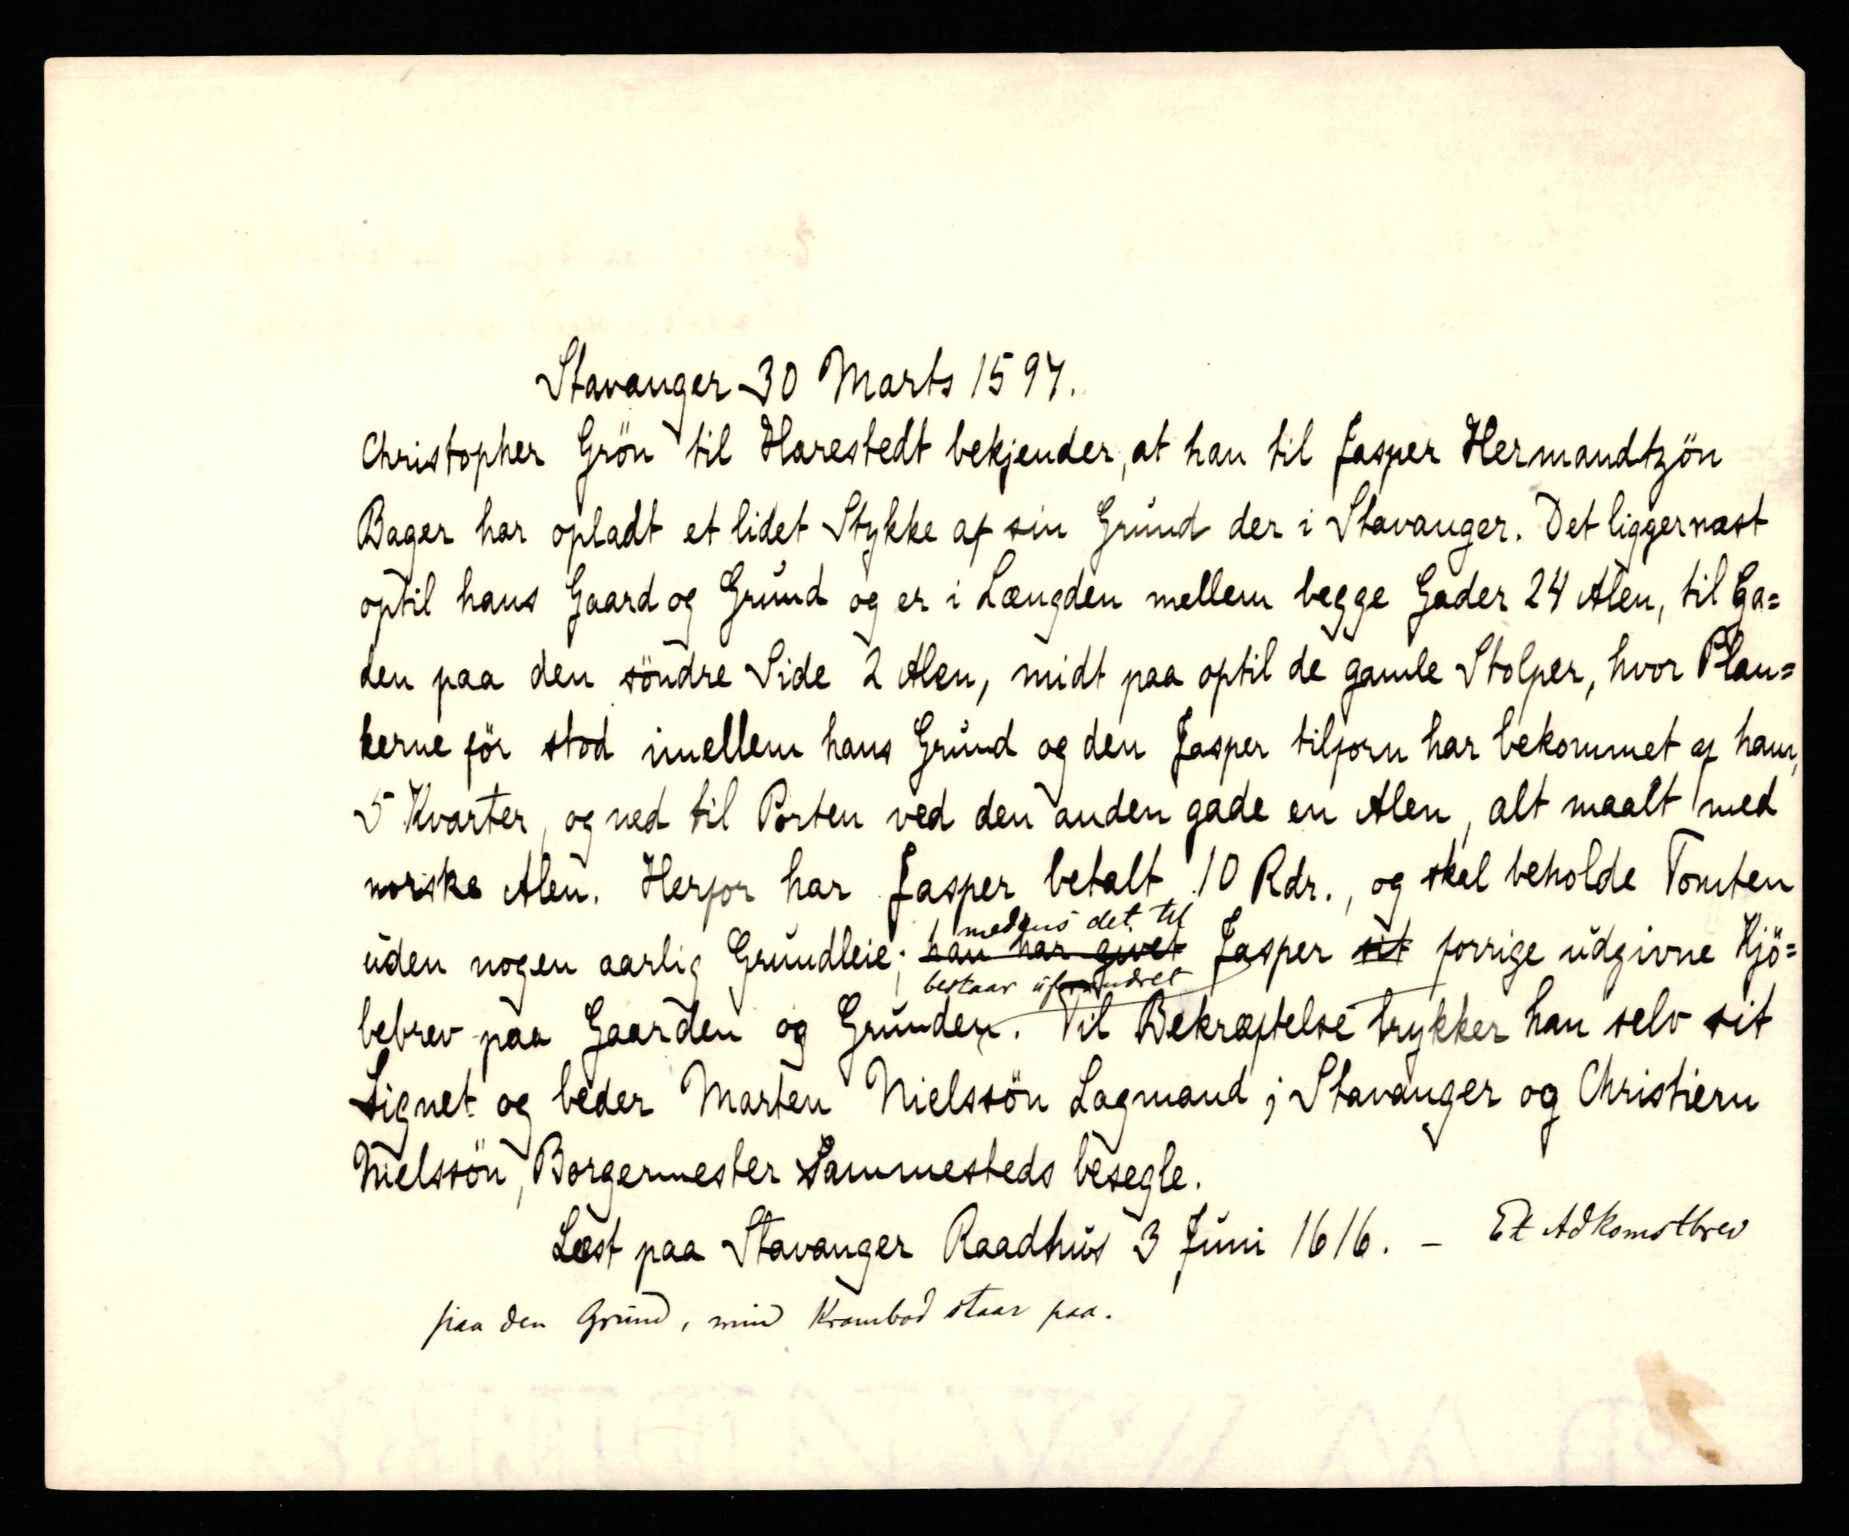 Stavanger 30 Marts 1597.
Christopher Grön til Harestedt bekjender, at han til Jasper Hermandtzön
Bager har opladt et lidet Stykke af sin Grund der i Stavanger. Det ligger næst
optil hans Gaard og Grund og er i Længden mellem begge Gader 24 Alen, til Ga=
den paa den söndre Side 2 Alen, midt paa optil de gamle Stolper, hvor Plan=
kerne för stod imellem hans Grund og den Jasper tilforn har bekommet af ham,
5 Kvarter, og ned til Porten ved den anden gade en Alen, alt maalt med
norske Alen. Herfor har Jasper betalt 10 Rdr., og skal beholde Tomten
medens det til
uden nogen aarlig Grundleie; han har givet Jasper sit forrige udgivne Kjö=
bestaar uforandret
bebrev paa Gaarden og Grunden. Til Bekræftelse trykker han selv sit
Signet og beder Marten Nielssön Lagmand i Stavanger og Christiern
Nielssön, Borgermester sammesteds besegle.
Læst paa Stavanger Raadhus 3 Juni 1616. – Et Adkomstbrev
paa den Grund, min Krambod staar paa.